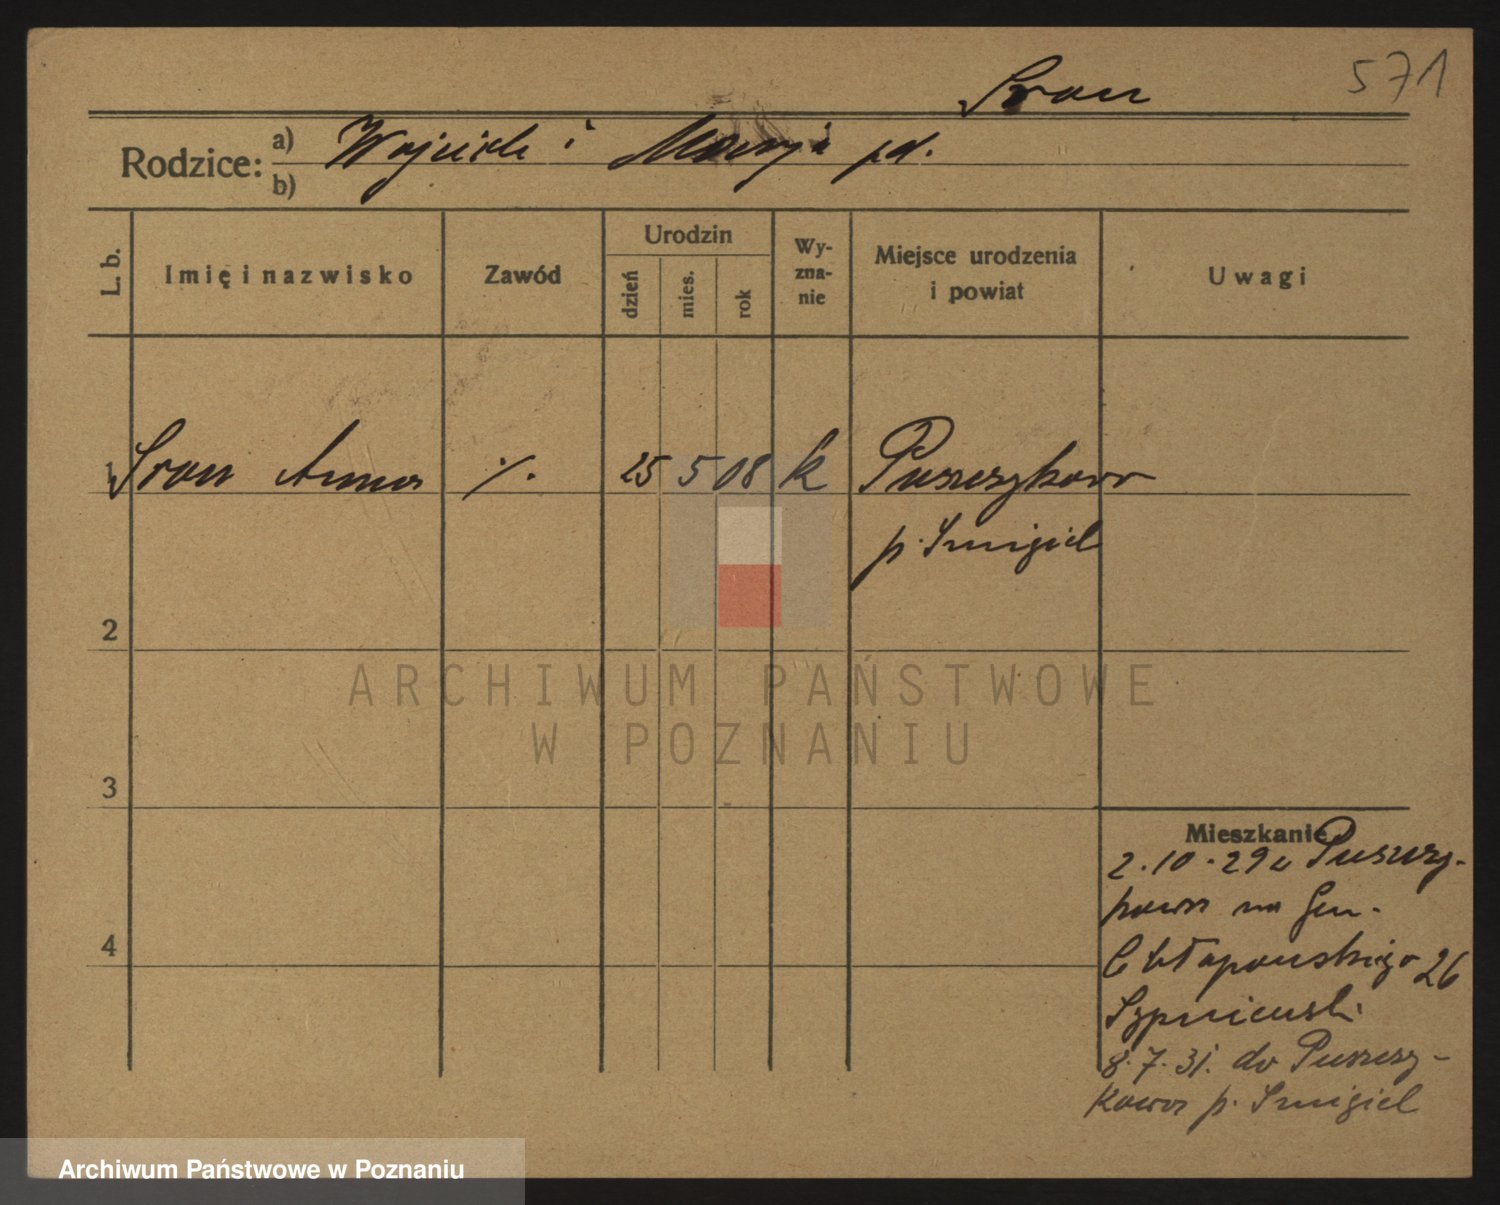 571
Sron
Rodzice: a) Wojciech i Maryja pd.
b)
L. b. Imię i nazwisko Zawód Urodzin dzień mies. rok Wy-zna-nie Miejsce urodzenia i powiat Uwagi
1 Sron Anna ./. 25 5 08 k Puszczykowo
p. Smigiel
2
3
4
Mieszkanie
2.10.29 z Puszczy-
kowa na Gen.
Chłapowskiego 26
8.7.31. do Puszczy-
kowa p. Smigiel
ARCHIWUM PAŃSTWOWE
W POZNANIU
Archiwum Państwowe w Poznaniu